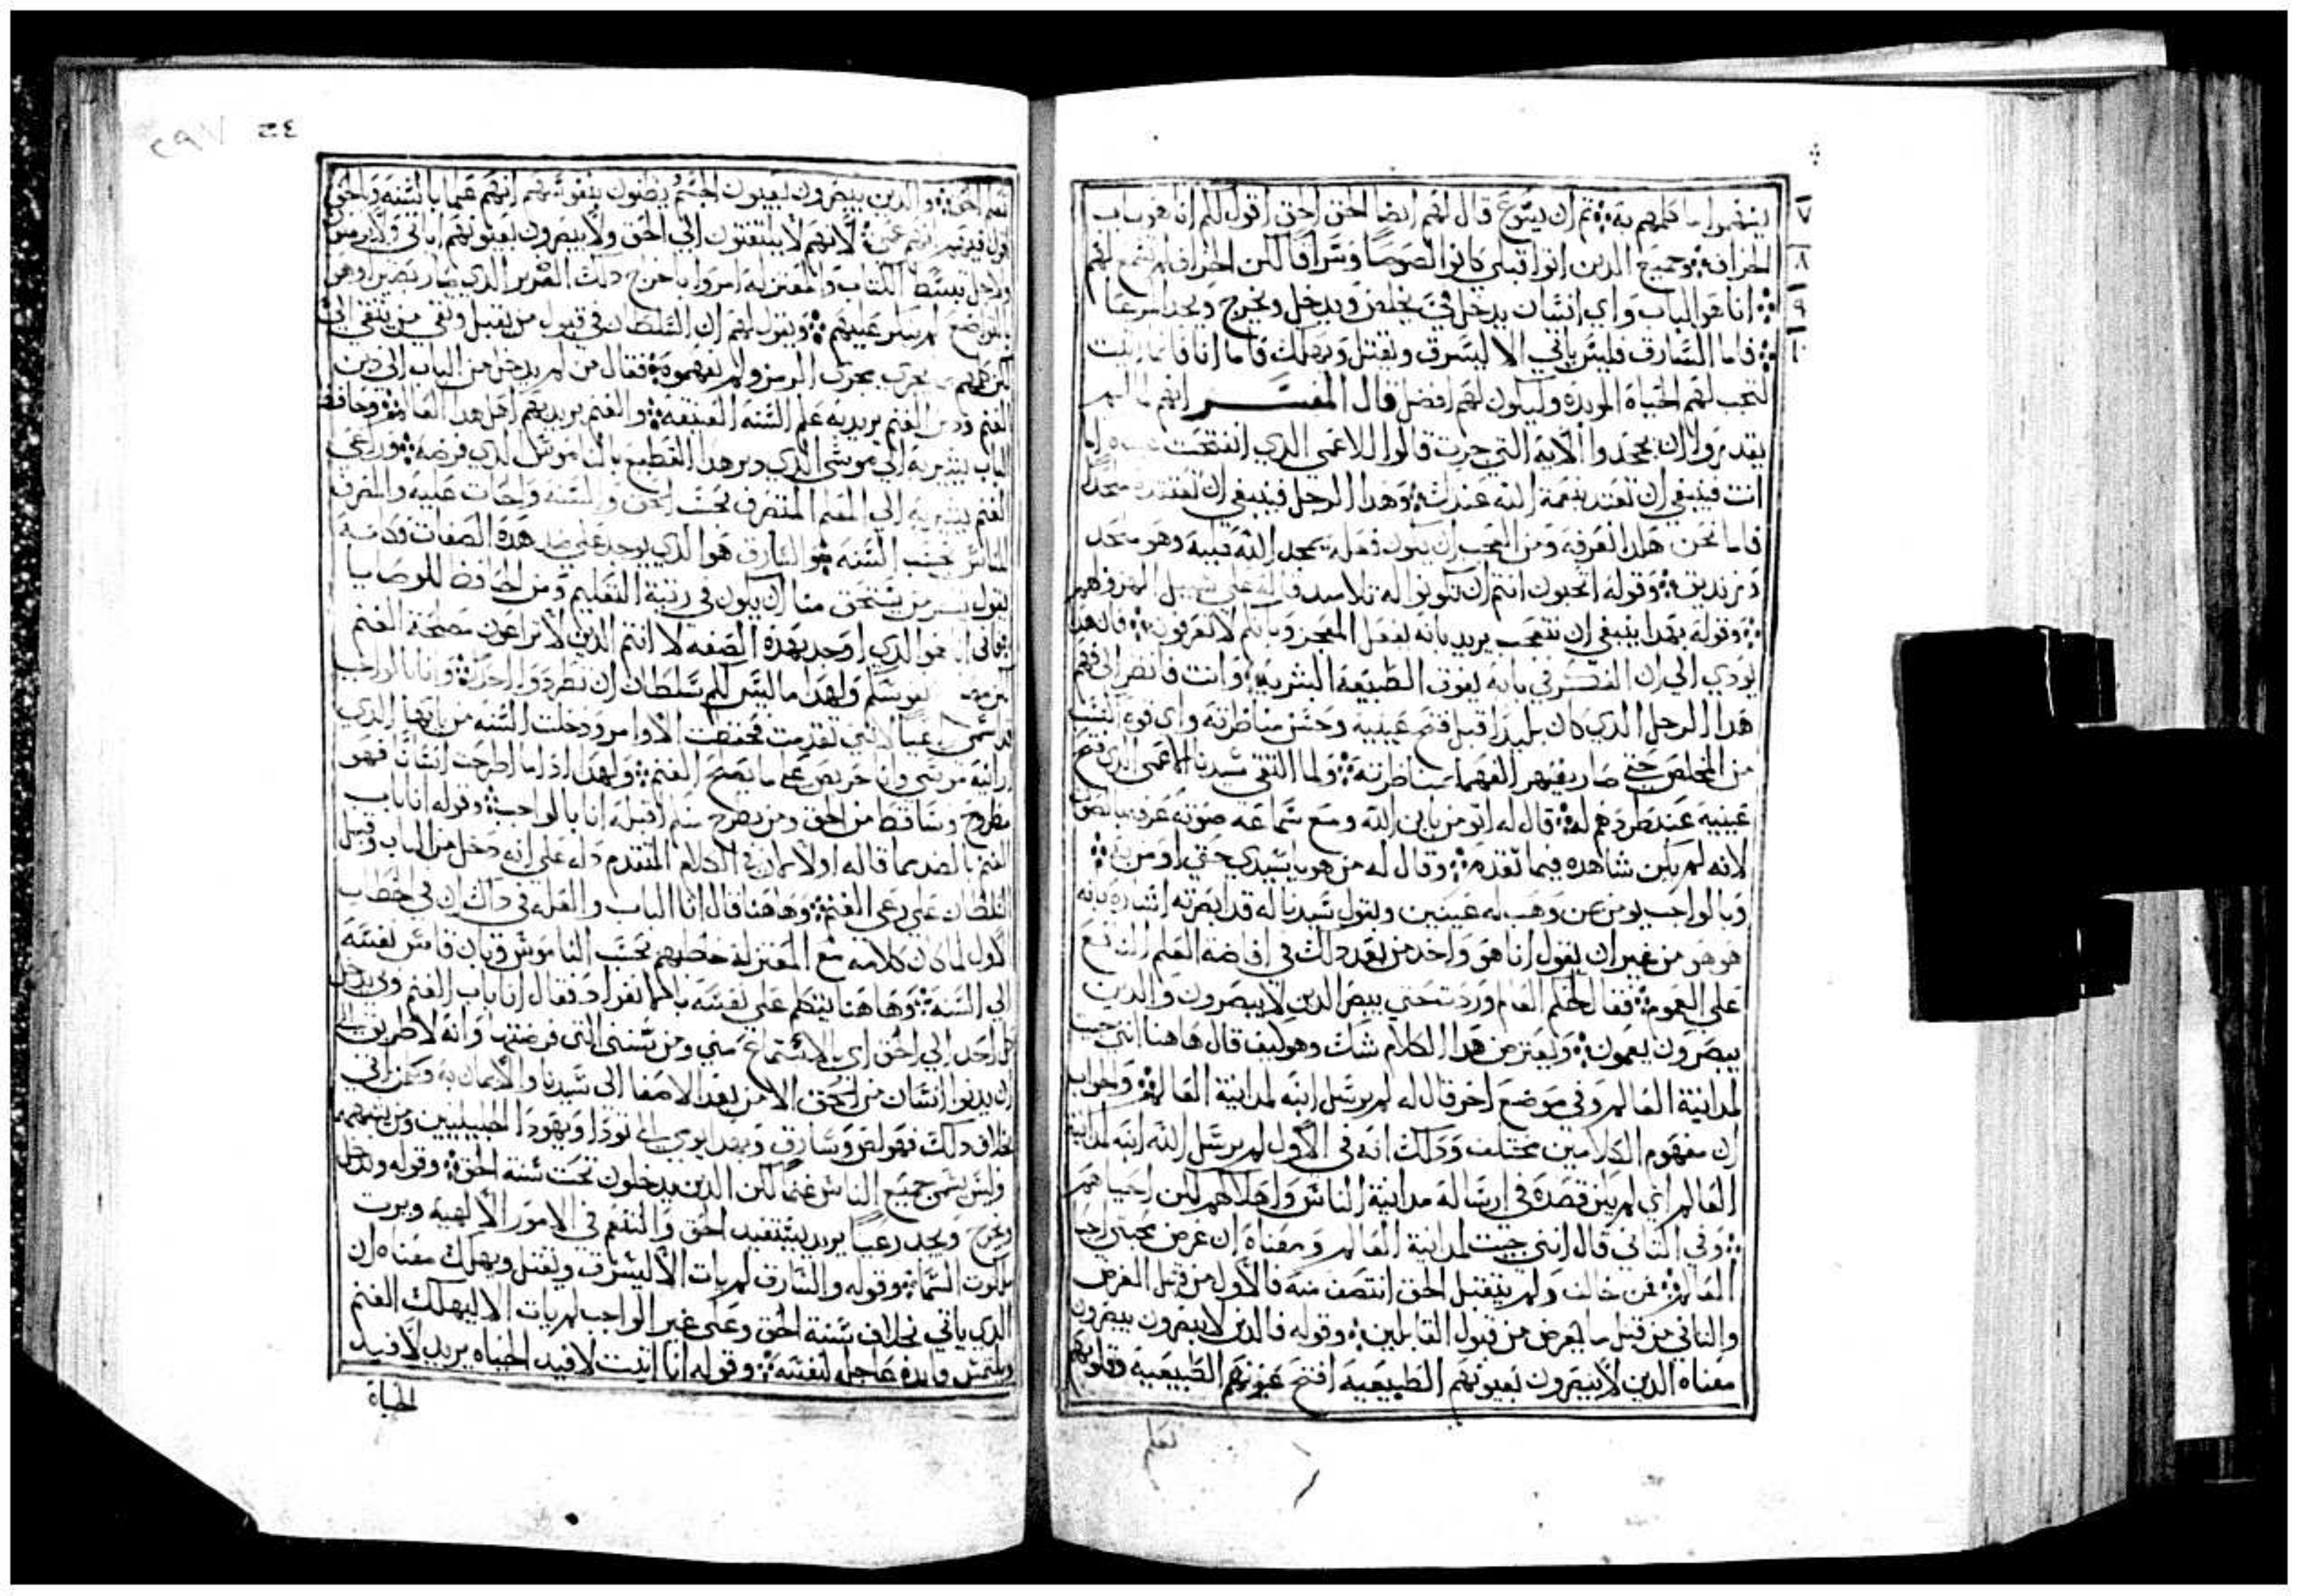 يفهموا ما كلمهم به ܀ ثم ان يسوع قال لهم ايضا الحق الحق اقول لكم انا هو باب
٧
الخراف ܀ وجميع الدين اتوا قبلي كانوا لصوصا وسراقا لكن الخراف لم تسمع لهم
٨
܀ انا هو الباب واي انسان يدخل في يخلص ويدخل ويخرج ويجد مرعا
٩
܀ فاما السارق فليس ياتي الا ليسرق ويقتل ويهلك فاما انا فاتيت
١٠
لتجب لهم الحياة الموبده وليكون لهم افضل قال المفسر انهم لما لم
يقدروا ان يجحدوا الاية التي جرت قالوا للاعمى الدي انفتحت عيناه اما
انت فينبغي ان تعتد بنعمة الله عندك ܀ وهذا الرجل فينبغي ان تعتقده ملحدا
فاما نحن هكدا نعرفه ومن العجب ان يكون فعله يمجد الله قلبه وهو ملحد
وزنديق ܀ وقوله اتحبون انتم ان تكونوا له تلاميد قاله على سبيل الهزو بهم
܀ وقوله بهدا ينبغي ان نتعجب يريد بانه يفعل المعجز وبانكم لا تعرفون ܀ قال هدا
يودي الي ان المفسر في بابه يفوق الطبيعة البشرية ܀ وانت فانظر الى فهم
هدا الرجل الدي كان بليدا قبل فتح عينيه وحسن مناظرته واي قوه اكتسب
من المخلص حتى صار يقهر الفهما بمناظرته ܀ ولما التقى سيدنا الاعمى الدي فتح
عينيه عند طردهم له ܀ قال له اتومن بابن الله ومع سماعه صوته عرفه بالصوت
لانه لم يكن شاهده فيما تقدم ܀ وقال له من هو يا سيدي حتى اومن به ܀
وبالواجب يومن بمن وهب له عينين ويقول سيدنا له قد ابصرته اشاره بانه
هو هو من غير ان يقول انا هو واخد من بعد دلك في افاضة العلم النافع
على العموم ܀ فقال لحكم العالم وردت حتى يبصر الدين لا يبصرون والدين
يبصرون يعمون ܀ ويعترض هدا الكلام شك وهو كيف قال هاهنا انني جيت
لمداينة العالم وفي موضع اخر قال له لم يرسل ابنه لمداينة العالم ܀ والجواب
ان مفهوم الكلامين مختلف ودلك انه في الاول لم يرسل الله ابنه لمداينة
العالم اي لم يكن قصده في ارساله مداينة الناس واهلاكهم لكن احياهم
܀ وفي التاني قال انني جيت لمداينة العالم ومعناه ان غرض مجيي احيا
العالم ܀ فمن خالف ولم يتقبل الحق انتصف منه فالاول من قبل الغرض
والتاني من قبل ما يعرض من قبول القابلين ܀ وقوله فالدين لا يبصرون يبصرون
معناه الدين لا يبصرون بعيونهم الطبيعية افتح عيونهم الطبيعية وقلوبهم
تعلم
٢٩٧
تعلم الحق ܀ والدين يبصرون بعيون الجسم ويظنون بنفوسهم انهم علما بالسنه والحق
لانهم لا يلتفتون الي الحق ولا يبصرون بعيونهم اياتي
ولاجل تبسط الكتاب والمعتزلة امروا باخراج دلك الضرير الدي صار بصيرا وهو
لم يسلم عليهم ܀ ويقول لهم ان السلطان في قبول من يقبل ونفي من ينتفي الي
يجري مجرى الرمز ولم يفهموه ܀ فقال من لم يدخل من الباب الى دير
الغنم ودير الغنم يريد به علم السنه العتيقه ܀ والغنم يريد بهم اهل هدا العالم ܀ وحافظ
الباب يشير به الي موسى الدي دبر هدا القطيع بالناموس الدي فرضه ܀ وراعي
الغنم يشير به الي المعلم المتصرف تحت الحق والسنه واجات عليه والتصرف
للناس بحسب السنه ܀ والسارق هو الدي يوجد على ضد هده الصفات وكانه
يقول من يستحق منا ان يكون في رتبة التعليم ومن الحافظ للوصايا
هو الدي اوجد بهده الصفه لا انتم الدين لا تراعون مصلحة الغنم
ولهدا ما ليس لكم سلطان ان تطردوا احدا ܀ وانا بالواجب
لانني تقدمت فحفظت الاوامر ودخلت السنه من بابها الدي
موسى وانا حريص على ما يصلح الغنم ܀ ولهدا ادا ما اطرحت انسانا فهو
مطروح وساقط من الحق ومن يطرح منكم اقبله انا بالواجب ܀ وقوله انا باب
الغنم بالضد مما قاله اولا لان في الكلام المتقدم دله على انه دخل من الباب وقبل
السلطان على رعي الغنم ܀ وهاهنا قال انا الباب والعله في داك ان في الخطاب
الاول لما كان كلامه مع المعتزلة خاطبهم بحسب الناموس وبان قاس نفسه
الي السنه ܀ وهاهنا يتكلم على نفسه بالانفراد فقال انا باب الغنم وبي يدخل
كل احد الي الحق اي بالاستماع مني ومن سنني التي فرضتها وانه لا طريق الى
ان يدنوا انسان من الحق الا من بعد الاصغا الى سيدنا والايمان به ومن اتي
بخلاف دلك فهو لص وسارق وبهدا يومي الى تودا ويهودا الجليليين ومن يتبعهما
وليس يسمى جميع الناس غنما لكن الدين يدخلون تحت سنة الحق ܀ وقوله ويدخل
ويخرج ويجد رعيا يريد يستفيد الحق والتنعم في الامور الالهية ويرت
ملكوت السما ܀ وقوله والسارق لم يات الا ليسرق ويقتل ويهلك معناه ان
الدي ياتي بخلاف سنة الحق وعلى غير الواجب لم يات الا ليهلك الغنم
ويلتمس فايده عاجله لنفسه ܀ وقوله انا اتيت لافيد الحياه يريد لافيد
الحياة